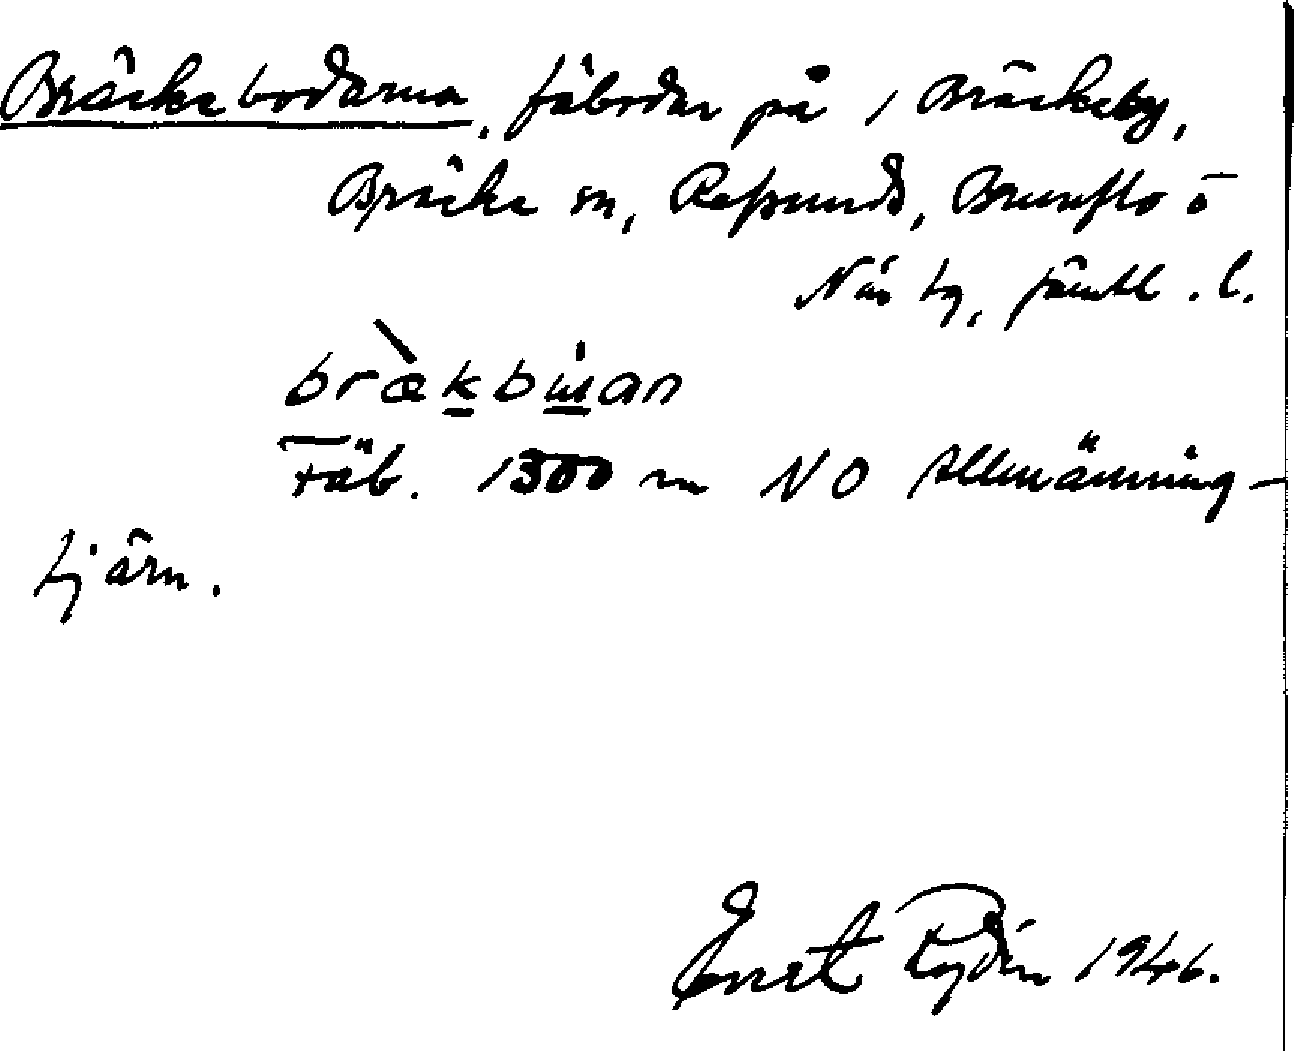 Bräckebodarna, fäbodar på 1 Bräckeby,
Bräcke sn, Refsunds, Brunflo o
Näs tg, Jämtl. l.
bræ̀kbuan
Fäb. 1300 m NO Allmänning-
tjärn.
Ernst Rydén 1946.